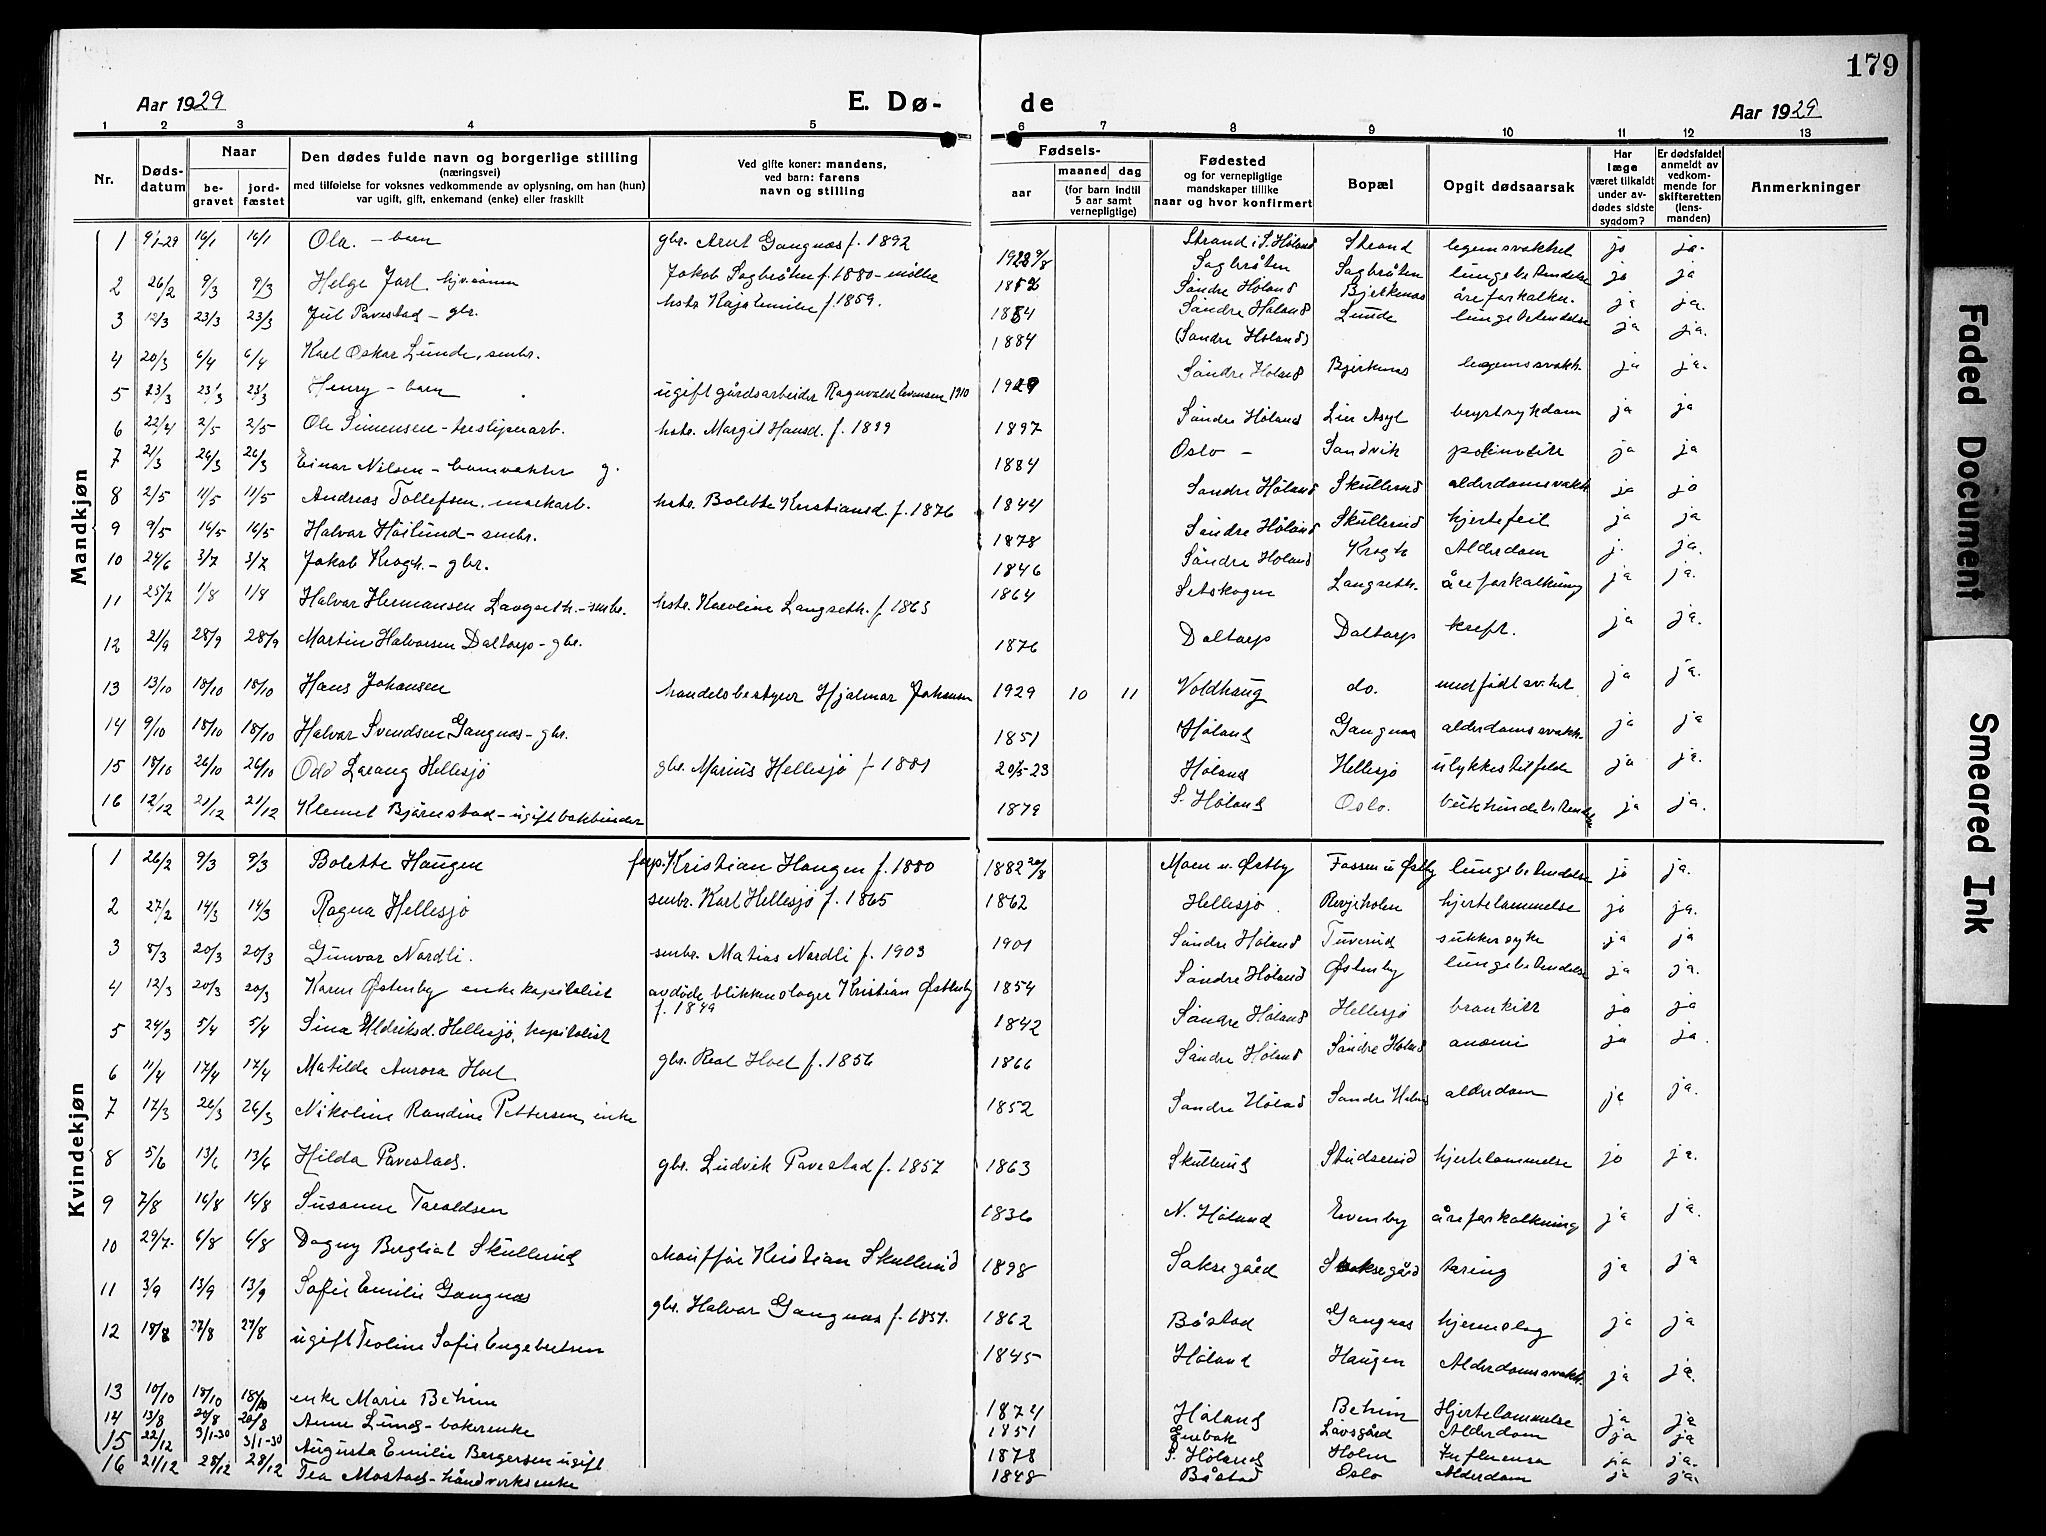 179
Aar 1929
E. Dø-
de
Aar 1929
1 2 3 4 5 6 7 8 9 10 11 12 13
Nr.
Døds-
datum
Naar
be-
gravet
jord-
fæstet
Den dødes fulde navn og borgerlige stilling
(næringsvei)
med tilføielse for voksnes vedkommende av oplysning, om han (hun)
var ugift, gift, enkemand (enke) eller fraskilt
Ved gifte koner: mandens,
ved barn: farens
navn og stilling
Fødsels-
aar
maaned dag
(for barn indtil
5 aar samt
vernepligtige)
Fødested
og for vernepligtige
mandskaper tillike
naar og hvor konfirmert
Bopæl
Opgit dødsaarsak
Har
læge
været tilkaldt
under av-
dødes sidste
sygdom?
Er dødsfaldet
anmeldt av
vedkom-
mende for
skifteretten
(lens-
manden)
Anmerkninger
Mandkjøn
1 9/1-29 16/1 16/1 Ola. - barn gbr. Arnt Gangnæs f. 1892 1928 9/8 Strand i S. Høland Strand legemsvakhet ja ja.
2 26/2 9/3 9/3 Helge Jarl Jakob Sagbråten f. 1880 Sagbråten Sagbråten lungebetendelse ja ja
3 12/3 23/3 23/3 Jul Pavestad - gbr. hstr. Kaja Emilie f. 1859. Søndre Høland Bjerkenes åreforkalkn. ja ja.
4 20/3 6/4 6/4 Karl Oskar Lunde, smbr. 1884 Søndre Høland Lunde lungebetendelse ja ja.
5 23/3 23/3 23/3 Henry - barn ugift gårdsarbeider Ragnvald Evensen 1910 1929 Søndre Høland Bjerkenes legemsvakh. ja ja.
6 22/4 2/5 2/5 Ole Simensen - tresliperarb. hstr. Margit Hansd. f. 1899 1897 Søndre Høland Lier Asyl brystsykdom ja ja
7 21/3 26/3 26/3 Einar Nilsen - g. 1884 Oslo - Sandvik ja ja
8 2/5 11/5 11/5 Andreas Tollefsen. hstr. Bolette Kristiansd. f. 1876 1844 Søndre Høland Skullerud alderdomsvakh. ja ja
9 9/5 16/5 16/5 Halvor Høilund - smbr. 1878 Søndre Høland Skullerud hjertefeil ja ja
10 24/6 3/7 3/7 Jakob Krogh. - gbr. 1846 Søndre Høland Krogh Alderdom j. ja.
11 25/7 1/8 1/8 Halvor Hermansen Langseth. - smbr. hstr. Karoline Langseth. f. 1863 1864 Setskogen Langseth. åreforkalkning ja ja.
12 21/9 28/9 28/9 Martin Halvorsen Daltorp - gbr. 1876 Daltorp Daltorp kreft. ja ja.
13 13/10 18/10 18/10 Hans Johansen handelsbestyrer Hjalmar Johansen 1929 10 11 Voldhaug do. medfødt svakhet ja ja.
14 9/10 18/10 18/10 Halvor Svendsen Gangnæs - gbr. 1851 Høland Gangnæs alderdomssvakh. ja ja
15 18/10 26/10 26/10 Odd Hellesjø gbr. Marius Hellesjø f 1881 20/5-23 Høland Hellesjø ulykkestilfelde ja ja.
16 12/12 21/12 21/12 Klemet Bjørnstad - ugift bokbinder 1879 S. Høland Oslo. bukhindebetendelse ja ja.
Kvindekjøn
1 26/2 9/3 9/3 Bolette Haugen forp. Kristian Haugen f. 1880 1882 20/8 Moen u. Østby Fossen u Østby lungebetendelse ja ja.
2 27/2 14/3 14/3 Ragna Hellesjø smbr. Karl Hellesjø f. 1865 1862 Hellesjø hjertelammelse ja ja.
3 8/3 20/3 20/3 Gunvor Nordli. smbr. Matias Nordli f. 1903 1901 Søndre Høland Tuverud sukkersyke ja ja
4 12/3 20/3 20/3 Karen Østenby enke kapitalist avdøde blikkenslager Kristian Østenby
f. 1849 1854 Søndre Høland Østenby lungebetendelse ja ja.
5 24/3 5/4 5/4 Sina Eldriksd. Hellesjø, kapitalist 1842 Søndre Høland Hellesjø bronkitt ja ja
6 11/4 17/4 17/4 Matilde Aurora Hoel gbr. Hoel f. 1856 1866 Søndre Høland Søndre Høland anæmi ja ja.
7 17/3 26/3 26/3 Nikoline Randine Pettersen, enke 1852 Søndre Høland Søndre Høland alderdom ja ja.
8 5/6 13/6 13/6 Hilda Pavestad. gbr. Ludvik Pavestad f. 1857 1863 Skullerud hjertelammelse ja ja.
9 7/8 16/8 16/8 Susanne Taraldsen 1836 N. Høland Evenby åreforkalkning ja ja.
10 29/7. 6/8 6/8 Dagny Bergliot Skullerud chauffør Kristian Skullerud 1898 Saksegård Saksegård tæring ja ja
11 3/9 13/9 13/9 Sofie Emilie Gangnæs gbr. Halvor Gangnæs f. 1851. 1862 Båstad Gangnæs hjerneslag ja ja
12 18/8 27/8 27/8 ugift Teoline Sofie Engebretsen 1845 Høland Haugen Alderdomssvakh. ja ja.
13 10/10 18/10 18/10 enke Marie Betrim 1874 Høland Betrim Hjertelammelse ja ja
14 13/8 20/8 20/8 Anne Lund - bakerenke 1851 Enebak Låvsgård Alderdom ja ja
15 22/12 3/1-30 3/1-30 Augusta Emilie Bergersen ugift 1878 S. Høland Holm Influensa ja ja.
16 21/12 28/12 28/12 Tea Mostad - håndverksenke 1848 Båstad Oslo Alderdom ja ja.
Faded Document
Smeared Ink